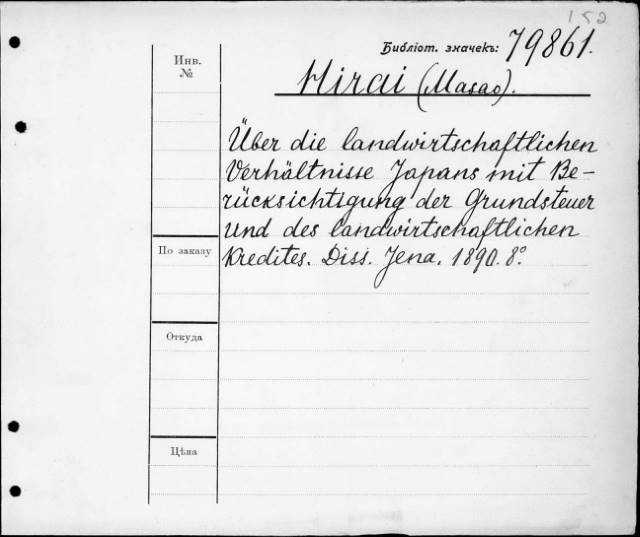 152
Библіот. значекъ: 79861.
Инв.
№
Hirai (Masao).
Über die landwirtschaftlichen
Verhältnisse Japans mit Be-
rücksichtigung der Grundsteuer
und des landwirtschaftlichen
По заказу
Kredites. Diss. Jena. 1890. 8º.
Откуда
Цѣна